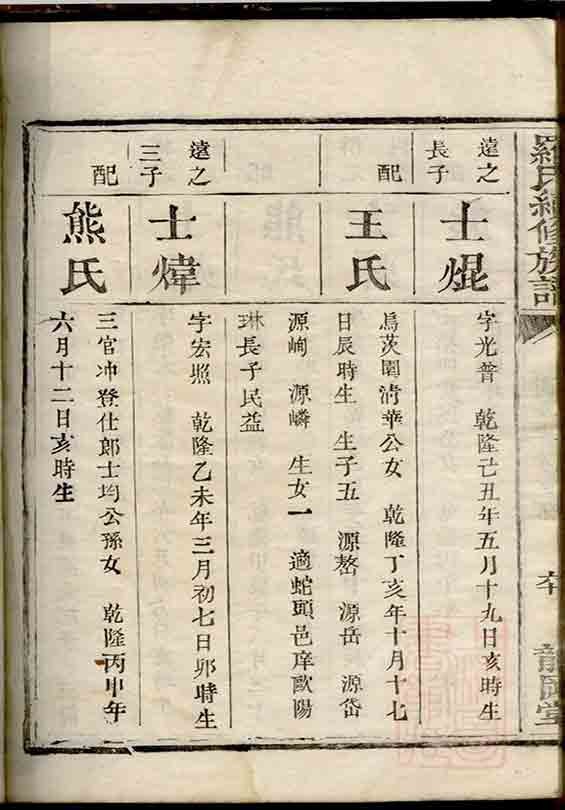 羅氏續修族譜
龍岡堂
遠之
長子
士焜
字光普 乾隆己丑年五月十九日亥時生
配
王氏
烏茨園清華公女 乾隆丁亥年十月十七
日辰時生 生子五 源嶅 源岳 源岱
源峋 源嶙 生女一 適蛇頭邑庠歐陽
琳長子民益
遠之
三子
士煒
字宏照 乾隆乙未年三月初七日卯時生
配
熊氏
三官冲登仕郎士均公孫女 乾隆丙申年
六月十二日亥時生